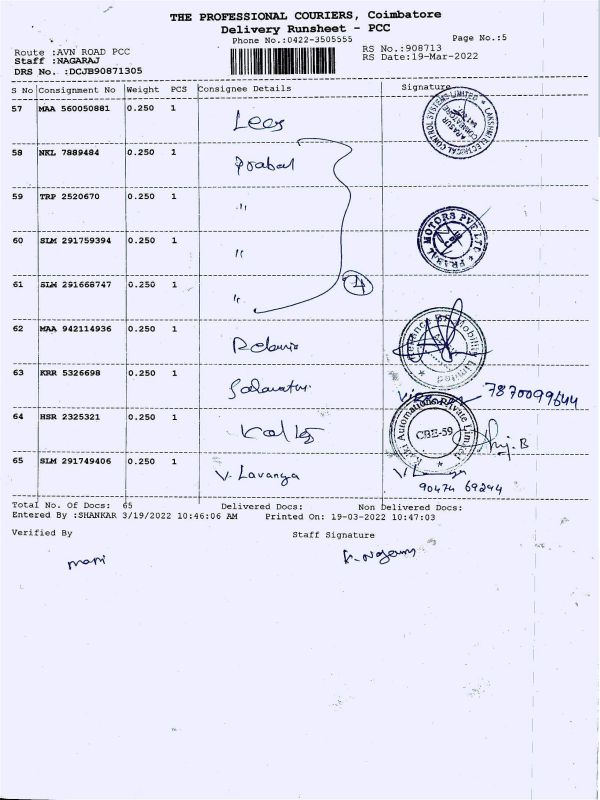 THE PROFESSIONAL COURIERS, Coimbatore
Delivery Runsheet - PCC
Phone No.:0422-3505555
Page No.:5
Route :AVN ROAD PCC
RS No.:908713
Staff :NAGARAJ
RS Date:19-Mar-2022
DRS No. :DCJB90871305
S No Consignment No Weight PCS Consignee Details Signature
57 MAA 560050881 0.250 1
LAKSHMI ELECTRICAL CONTROL SYSTEMS LIMITED
58 NKL 7889484 0.250 1 Prabal
59 TRP 2520670 0.250 1 "
60 SLM 291759394 0.250 1 "
PRABAL MOTORS PVT LTD
CBE
61 SLM 291668747 0.250 1 "
4
62 MAA 942114936 0.250 1
Mobility Limited
63 KRR 5326698 0.250 1
7870099644
64 HSR 2325321 0.250 1
Automation Private Limited
CBE-59
65 SLM 291749406 0.250 1 V. Lavanya
90474 69244
Total No. Of Docs: 65 Delivered Docs: Non Delivered Docs:
Entered By :SHANKAR 3/19/2022 10:46:06 AM Printed On: 19-03-2022 10:47:03
Verified By Staff Signature
mani